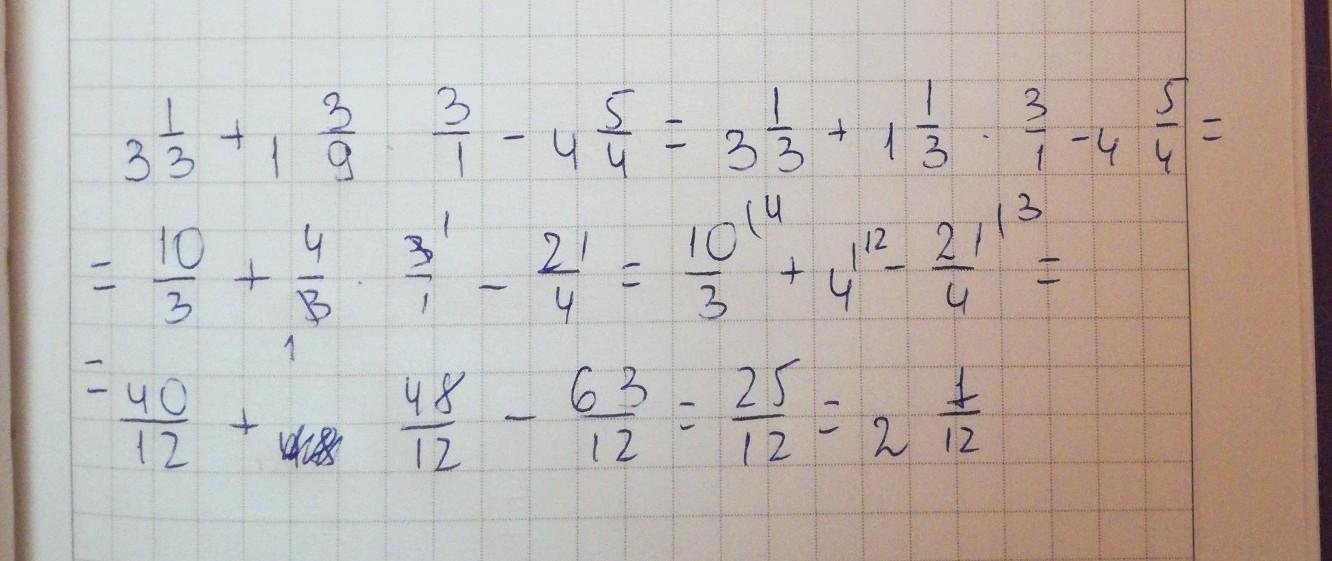 3 1/3 + 1 3/9 · 3/1 - 4 5/4 = 3 1/3 + 1 1/3 · 3/1 - 4 5/4 =
= 10/3 + 4/3 1 · 3/1 1 - 21/4 = 10/3 |4 + 4 |12 - 21/4 |3 =
= 40/12 + 48/12 - 63/12 = 25/12 = 2 1/12